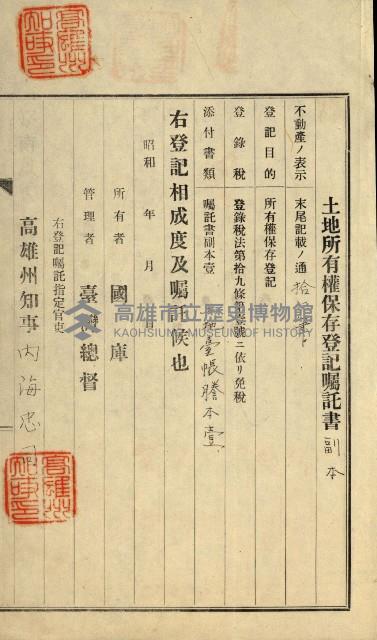 土地所有權保存登記囑託書 副本
不動產ノ表示 末尾記載ノ通 拾
登記目的 所有權保存登記
登錄稅 登錄稅法第拾九條第 號ニ依リ免稅
添付書類 囑託書副本壹 臺帳謄本壹
右登記相成度及囑託候也
昭和 年 月 日
所有者 國庫
管理者 臺灣總督
右登記囑託指定官吏
高雄州知事 內海忠
高雄州知事印
高雄州知事印
高雄市立歷史博物館
KAOHSIUNG MUSEUM OF HISTORY